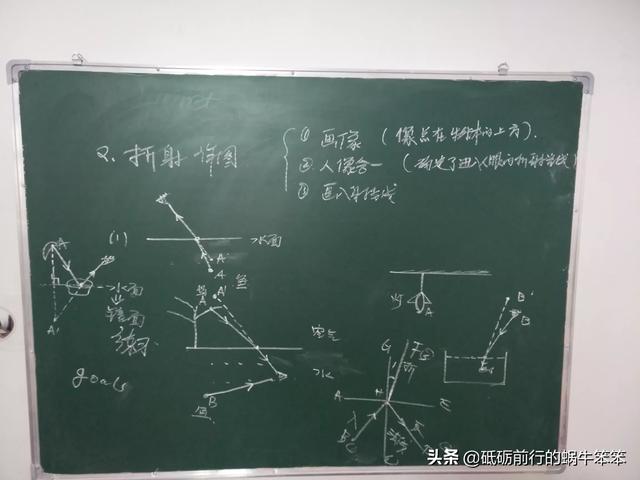 ① 画像 (像点在物体的上方).
2. 折射 作图
② 人像合一 (确定了进入人眼的折射光线)
③ 画入射光线
(1)
水面
A
A'
A
鱼
A
A'
A'
水面
镜面
空气
水
B
鱼
goals
灯
A
B'
B
G
N
A
E
C
头条 @砥砺前行的蜗牛笨笨